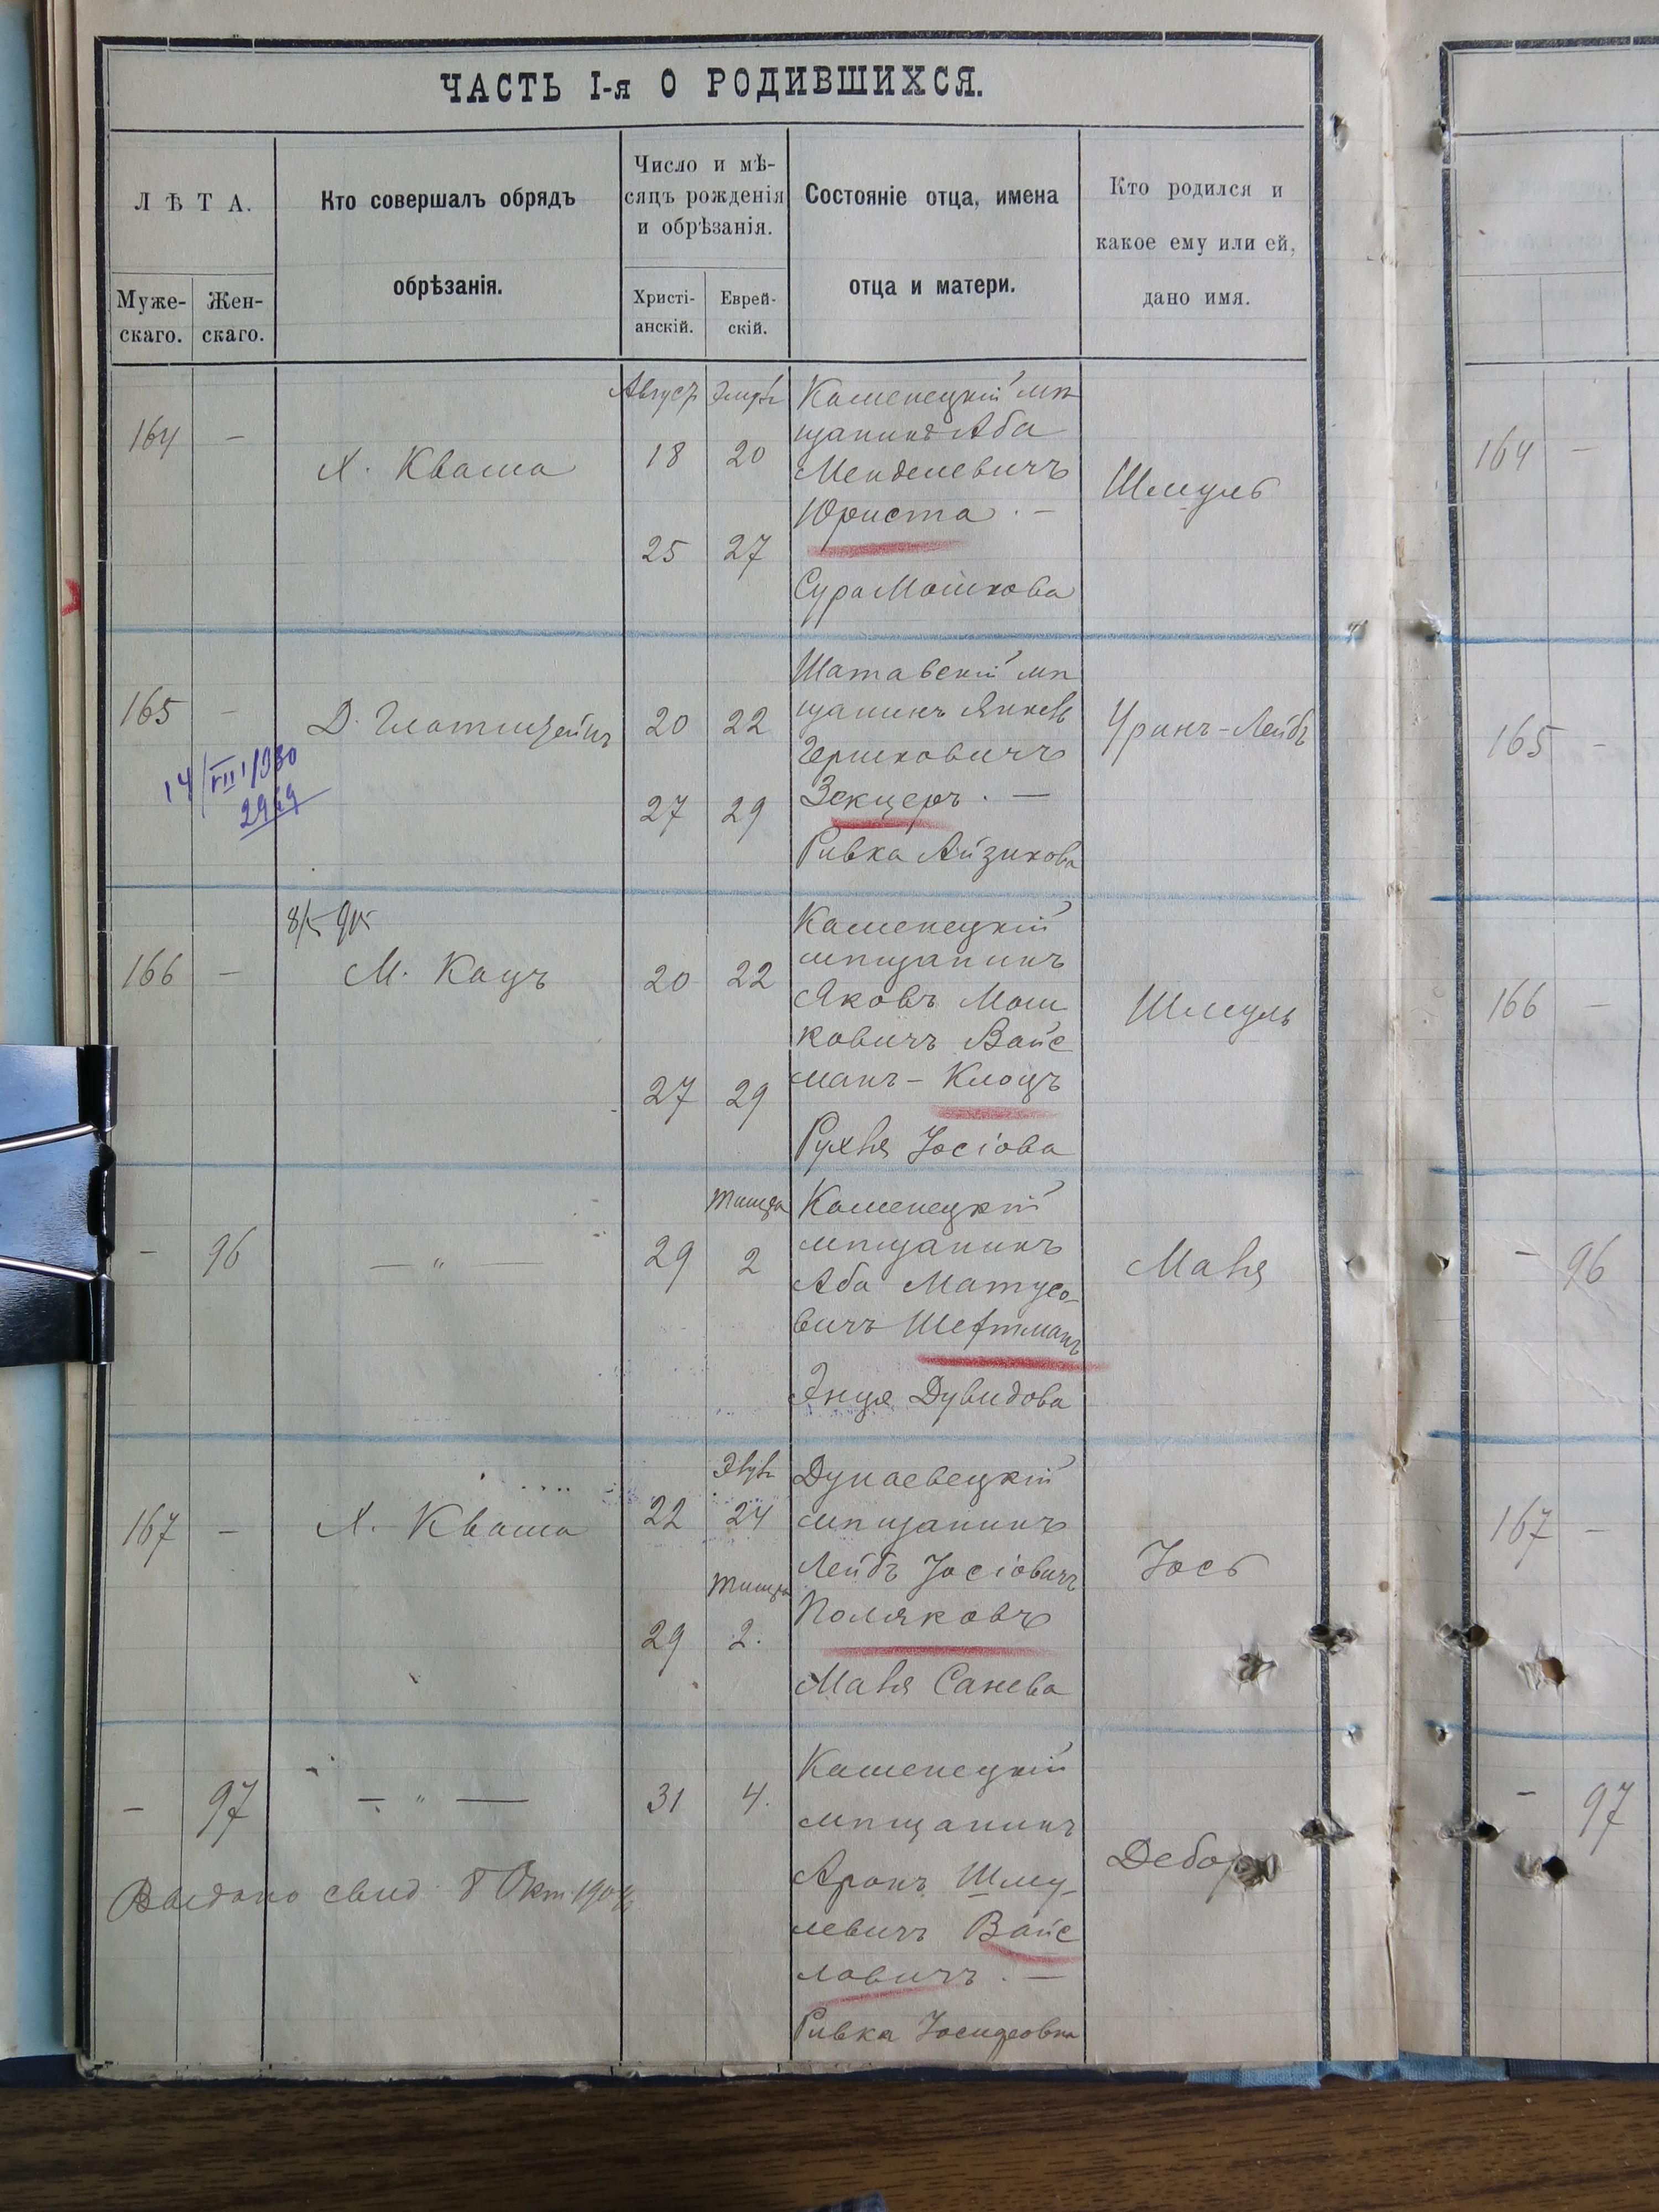 ЧАСТЬ I-я О РОДИВШИХСЯ.
ЛѢТА.
Муже-
скаго.
Жен-
скаго.
Кто совершалъ обрядъ
обрѣзанія.
Число и мѣ-
сяцъ рожденія
и обрѣзанія.
Христі-
анскій.
Еврей-
скій.
Состояніе отца, имена
отца и матери.
Кто родился и
какое ему или ей,
дано имя.
164 —
Х. Кваша
Август
18 20
25 27
Каменецкій мѣ
щанинъ Аба
Менделевичъ
Юриста . —
Сура Мошкова
Шмуль
164 —
165 —
14/VIII/930
2969
20 22
27 29
Шатавскій мѣ
щанинъ Янкель
Гершковичъ
Зекцеръ . —
Ривка Айзикова
Уринъ-Лейбъ
165 —
166 —
М. Кацъ
20 22
27 29
Каменецкій
мѣщанинъ
Яковъ Мош
ковичъ Вайс
манъ — Клоцъ
Рухля Іосіова
Шмуль
166 —
— 96
— " —
Тишра
29 2
Каменецкій
мѣщанинъ
Аба Матусо-
вичъ Шефтманъ
Энця Дувидова
Маня
— 96
167 —
Х. Кваша
22 24
Тишра
29 2.
Дунаевецкій
мѣщанинъ
Лейбъ Іосіовичъ
Поляковъ
Маня Санева
Іось
167 —
— 97
— " —
31 4.
Каменецкій
мѣщанинъ
Аронъ Шму-
левичъ Вайс
ловичъ . —
Ривка
Дебора
— 97
Выдано свид. 8 Окт.